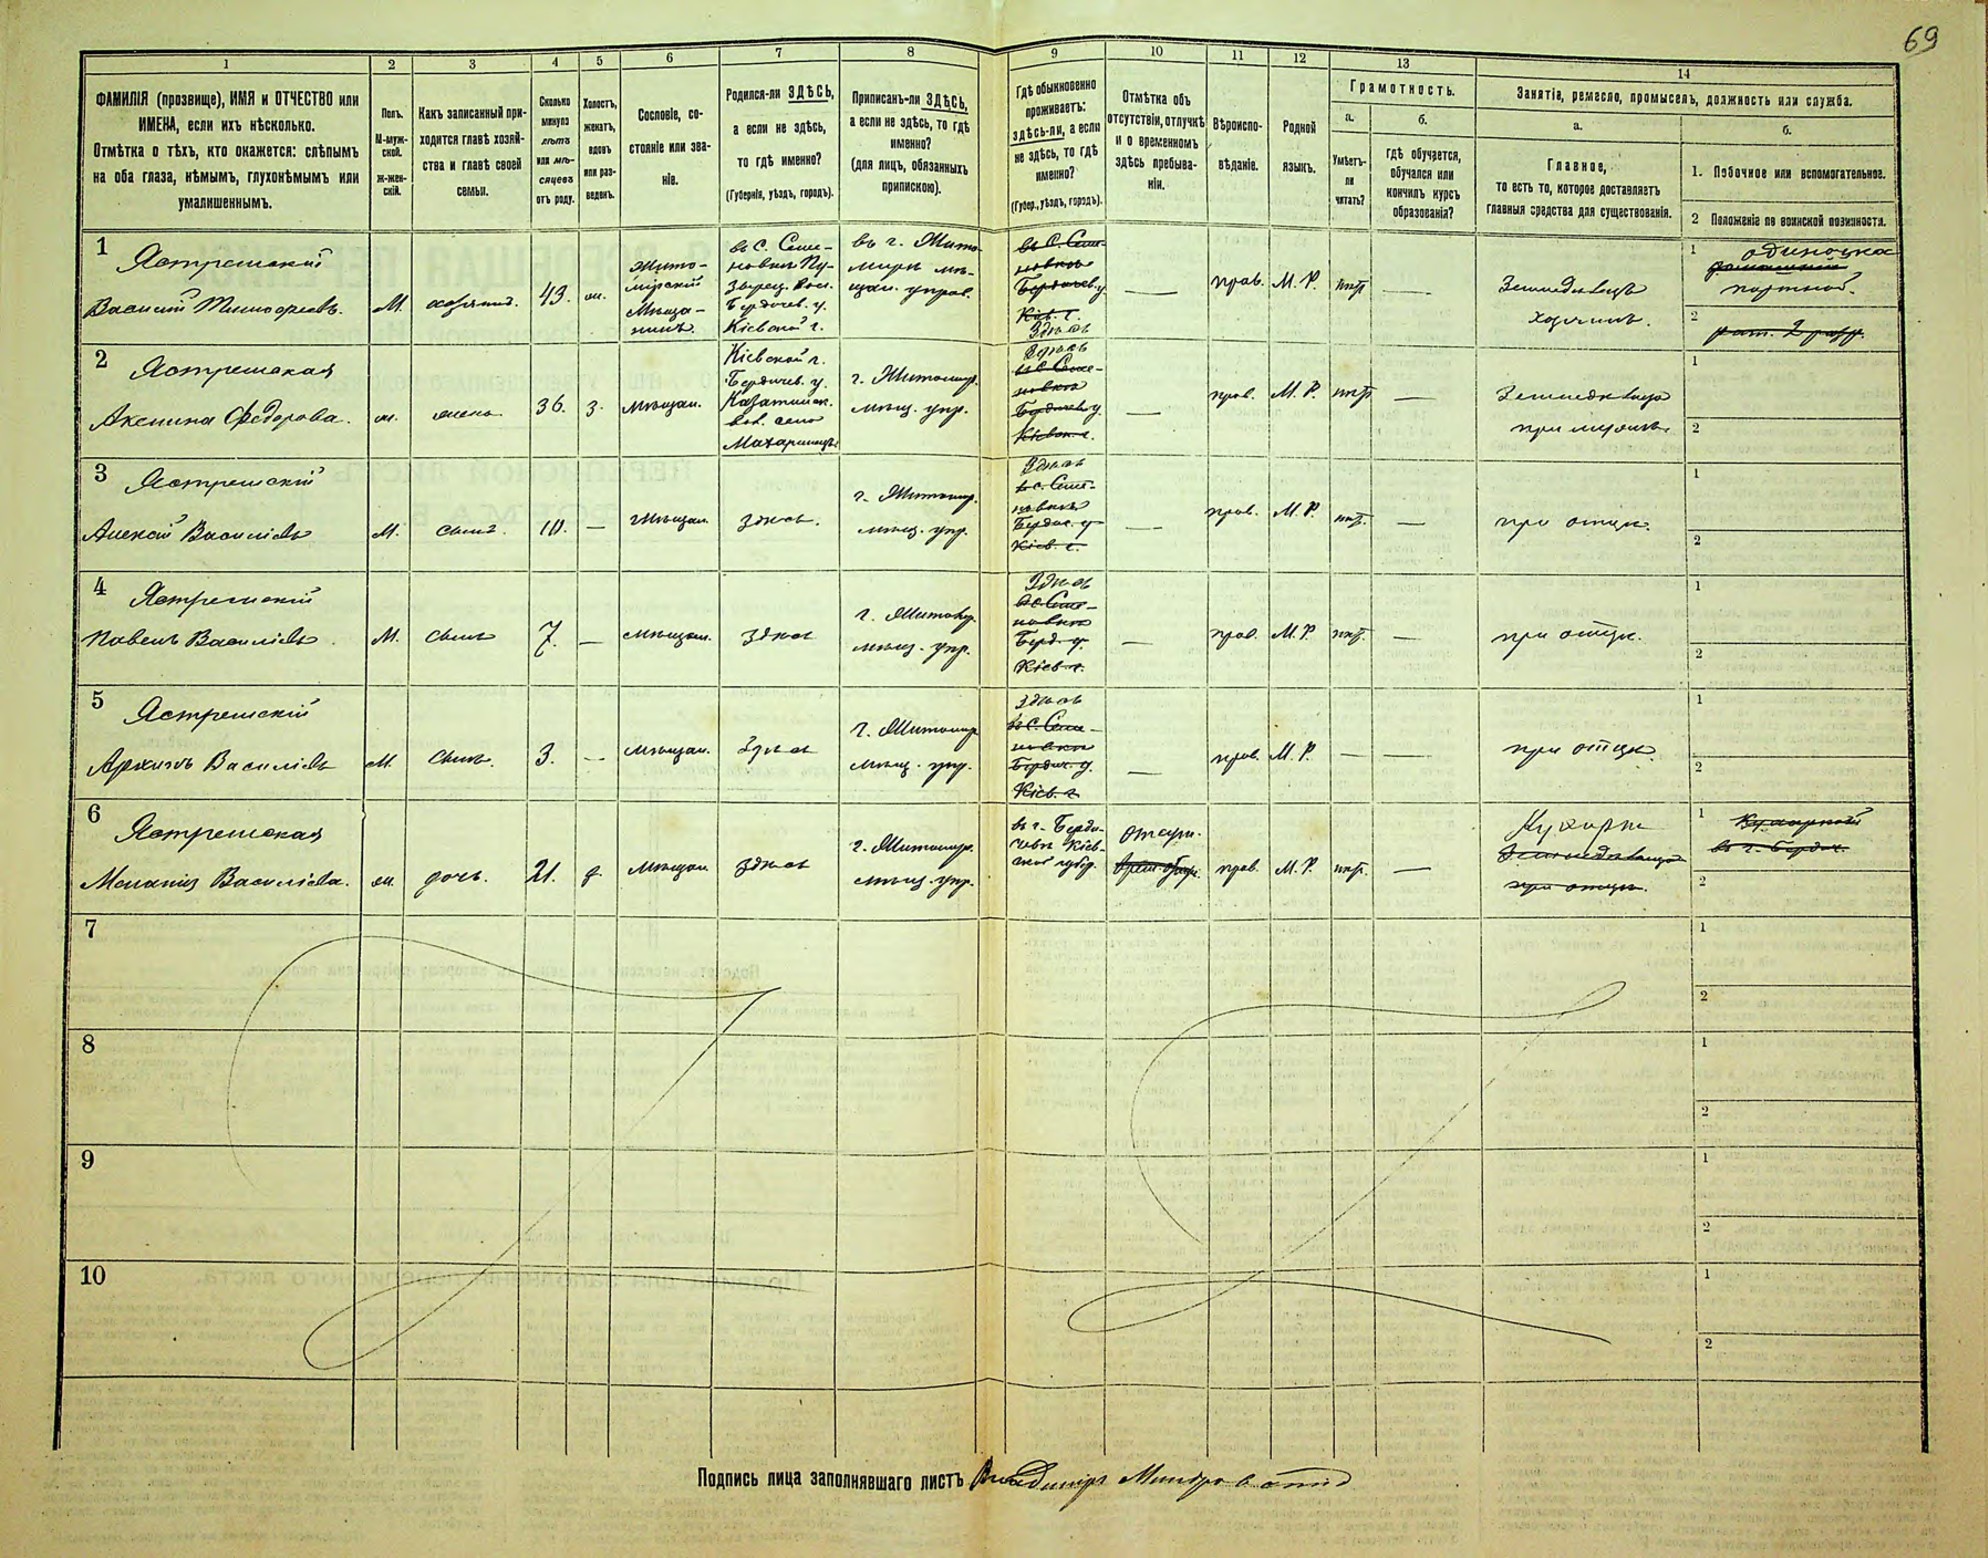 69
1 2 3 4 5 6 7 8 9 10 11 12 13 14
ФАМИЛІЯ (прозвище), ИМЯ и ОТЧЕСТВО или
ИМЕНА, если ихъ нѣсколько.
Отмѣтка о тѣхъ, кто окажется: слѣпымъ
на оба глаза, нѣмымъ, глухонѣмымъ или
умалишеннымъ.
Полъ.
М-муж-
ской.
Ж-жен-
скій.
Какъ записанный при-
ходится главѣ хозяй-
ства и главѣ своей
семьи.
Сколько
минуло
лѣтъ
или мѣ-
сяцевъ
отъ роду.
Холостъ,
женатъ,
вдовъ
или раз-
веденъ.
Сословіе, со-
стояніе или зва-
ніе.
Родился-ли ЗДѢСЬ,
а если не здѣсь,
то гдѣ именно?
(Губернія, уѣздъ, городъ).
Приписанъ-ли ЗДѢСЬ,
а если не здѣсь, то гдѣ
именно?
(для лицъ, обязанныхъ
припискою).
Гдѣ обыкновенно
проживаетъ:
здѣсь-ли, а если
не здѣсь, то гдѣ
именно?
(Губер., уѣздъ, городъ).
Отмѣтка объ
отсутствіи, отлучкѣ
и о временномъ
здѣсь пребыва-
ніи.
Вѣроиспо-
вѣданіе.
Родной
языкъ.
Грамотность.
а.
Умѣетъ-
ли
читать?
б.
гдѣ обучается,
обучался или
кончилъ курсъ
образованія?
Занятія, ремесло, промыселъ, должность или служба.
а.
Главное,
то есть то, которое доставляетъ
главныя средства для существованія.
б.
1. Побочное или вспомогательное.
2 Положеніе по воинской повинности.
1
Ястремскій
Василій Тимофеевъ.
М.
хозяинъ.
43.
ж.
Жито-
мірскій
Мѣща-
нинъ.
въ с. Семе-
новкѣ
Бердичев. у.
Кіевской г.
въ г. Жито-
мирѣ мѣ-
щан. управ.
въ с. Семе-
новкѣ
Бердичев. у.
Кіев. г.
Здѣсь
—
прав.
М. Р.
—
Земледѣлецъ
хозяинъ.
1
одиночка
портной.
2
2
Ястремская
Аксинія Федорова.
ж.
жена.
36.
з.
мѣщан.
Кіевской г.
Бердичев. у.
вол. село
г. Житомир.
мѣщ. упр.
Здѣсь
въ с. Семе-
новкѣ
Бердичев. у.
Кіевск. г.
—
прав.
М. Р.
—
при мужѣ.
1
2
3
Ястремскій
Алексѣй Василіевъ
М.
сынъ.
10.
—
мѣщан.
здѣсь.
г. Житомир.
мѣщ. упр.
Здѣсь
въ с. Семе-
новкѣ
Бердич. у
Кіев. г.
—
прав.
М. Р.
—
при отцѣ.
1
2
4
Ястремскій
Павелъ Василіевъ.
М.
сынъ
7.
—
мѣщан.
здѣсь
г. Житомир.
мѣщ. упр.
Здѣсь
въ с. Семе-
новкѣ
Берд. у.
Кіев. г.
—
прав.
М. Р.
—
при отцѣ.
1
2
5
Ястремскій
Архипъ Василіевъ
М.
сынъ.
3.
—
мѣщан.
Здѣсь
г. Житомир
мѣщ. упр.
здѣсь
въ с. Семе-
новкѣ
Бердич. у.
Кіев. г
—
прав.
М. Р.
—
—
при отцѣ.
1
2
6
Ястремская
Меланія Василіева.
ж.
дочь.
21.
д.
мѣщан.
здѣсь
г. Житомир.
мѣщ. упр.
въ г. Берди-
чевѣ Кіев-
ской губер.
отсут.
прав.
М. Р.
—
Кухарка
при отцѣ.
1
въ г. Бердич.
2
7
1
2
8
1
2
9
1
2
10
1
2
Подпись лица заполнявшаго листъ Владиміръ